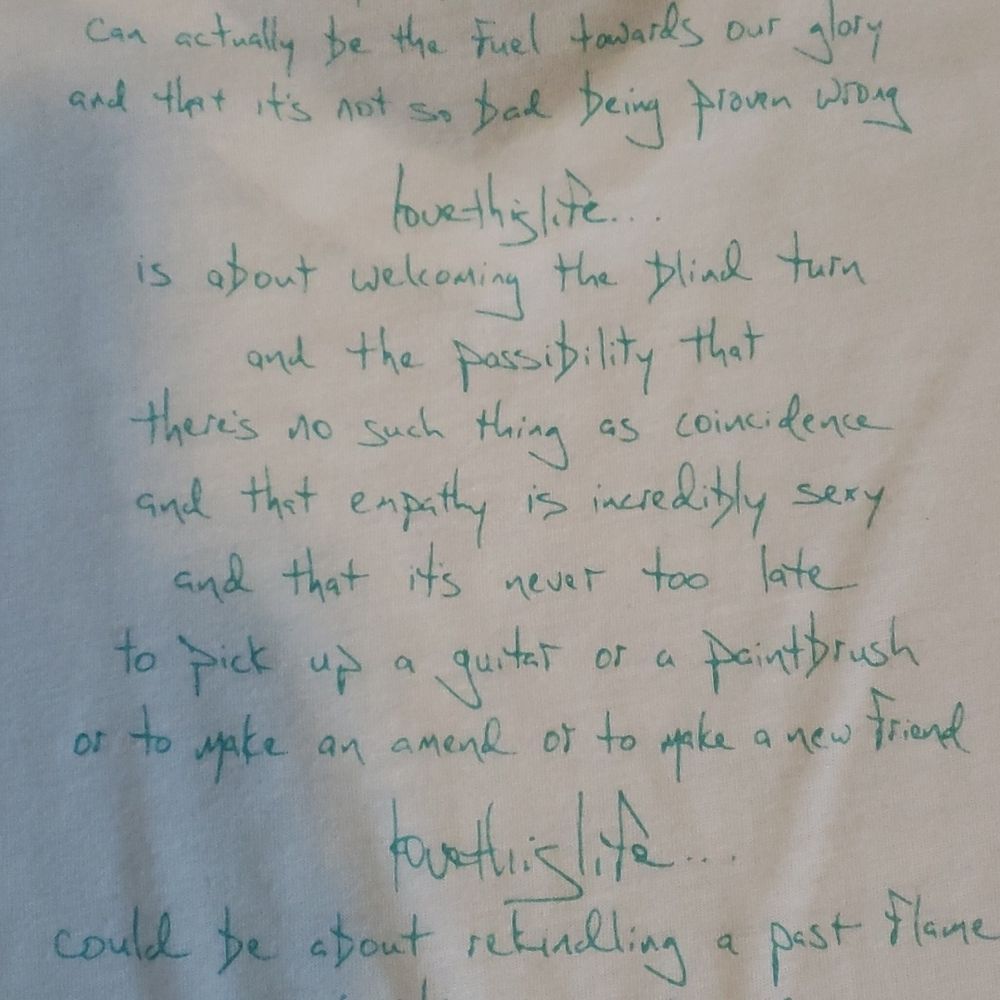 can actually be the fuel towards our glory
and that it's not so bad being proven wrong
lovethislife...
is about welcoming the blind turn
and the possibility that
there's no such thing as coincidence
and that empathy is incredibly sexy
and that it's never too late
to pick up a guitar or a paintbrush
or to make an amend or to make a new friend
lovethislife...
could be about rekindling a past flame